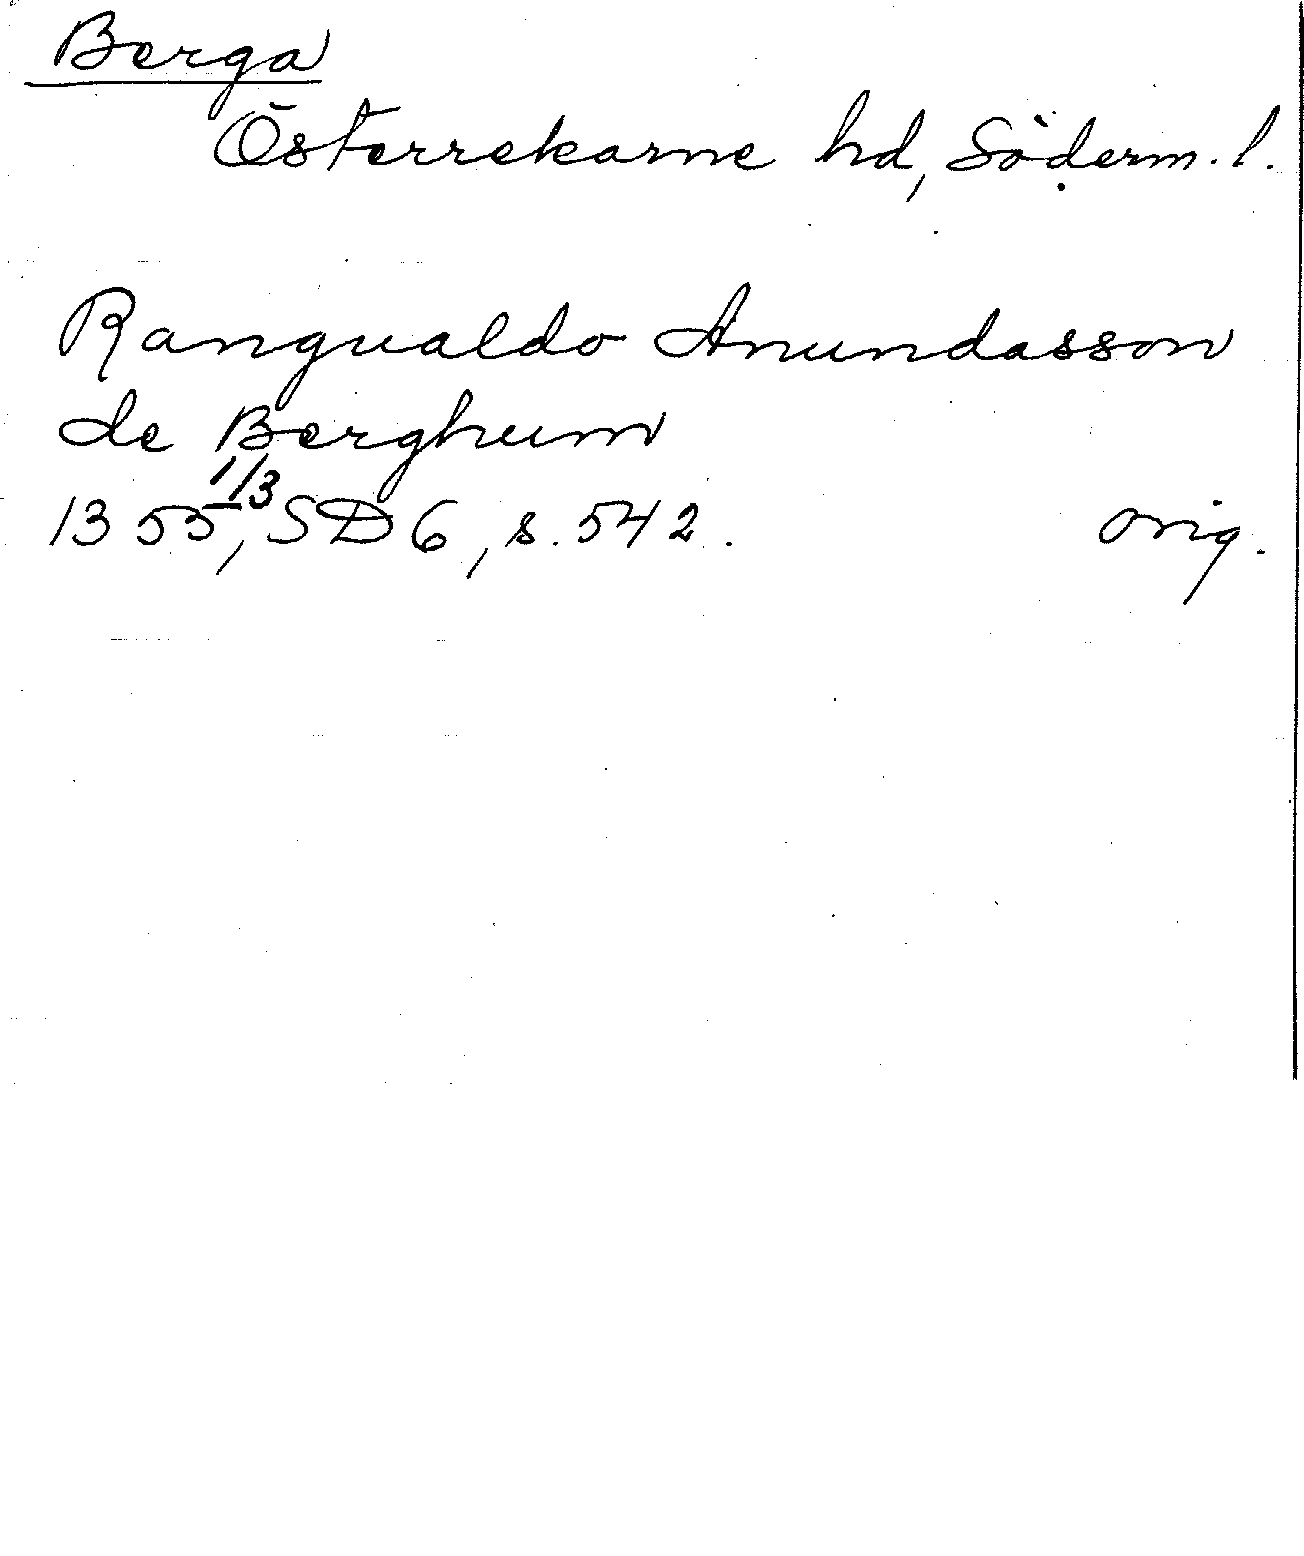 Berga
Österrekarne hd, Söderm. l.
Rangualdo Anundasson
de Berghum
1355 1/3, SD 6, s. 542.
orig.